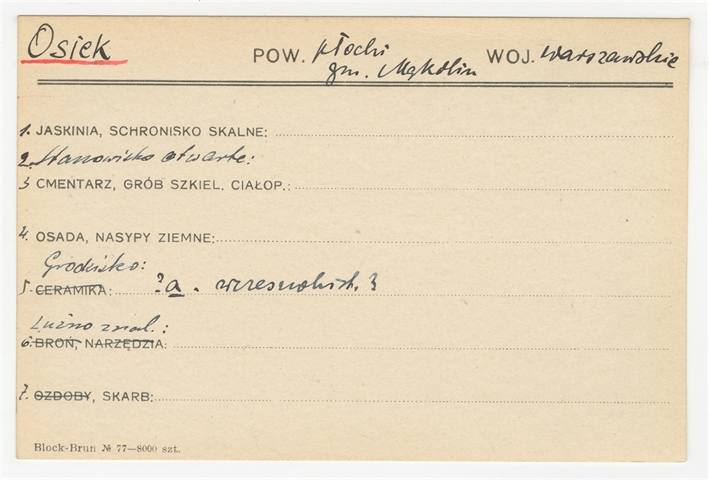 Osiek POW. płocki WOJ. warszawskie
gm. Mąkolin
1. JASKINIA, SCHRONISKO SKALNE:
2. Stanowisko otwarte:
3 CMENTARZ, GRÓB SZKIEL. CIAŁOP.:
4. OSADA, NASYPY ZIEMNE:
Grodzisko:
5. CERAMIKA: ?a. wczesnohist. }
Luźno znal.:
6. BROŃ, NARZĘDZIA:
7. OZDOBY, SKARB:
Block-Brun № 77—8000 szt.